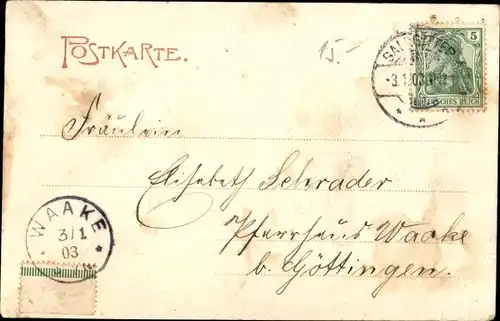 POSTKARTE.
15.-
5
-3.1.03
DEUTSCHES REICH
Fräulein
Elisabeth Schrader
Pfarrhaus Waake
b. Göttingen.
WAAKE
3/1
03